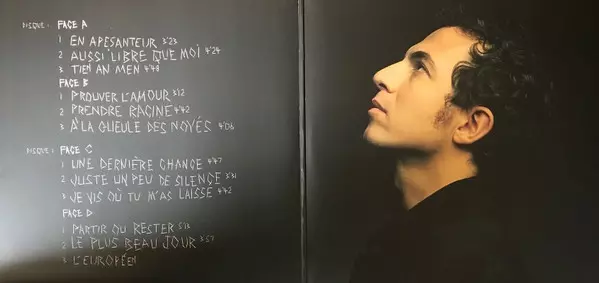 DISQUE 1 FACE A
1 EN APESANTEUR 3'23
2 AUSSI LIBRE QUE MOI 4'24
3 TIEN AN MEN 4'48
FACE B
1 PROUVER L'AMOUR 3'12
2 PRENDRE RACINE 4'42
3 À LA GUEULE DES NOYÉS 4'06
DISQUE 2 FACE C
1 UNE DERNIÈRE CHANCE 4'47
2 JUSTE UN PEU DE SILENCE 3'31
3 JE VIS OÙ TU M'AS LAISSÉ 4'42
FACE D
1 PARTIR OU RESTER
2 LE PLUS BEAU JOUR 3'57
3 L'EUROPÉEN